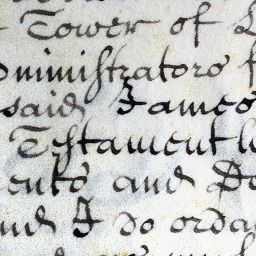 Tower of
ministrators
said James
Testament
ents and
and I do orda